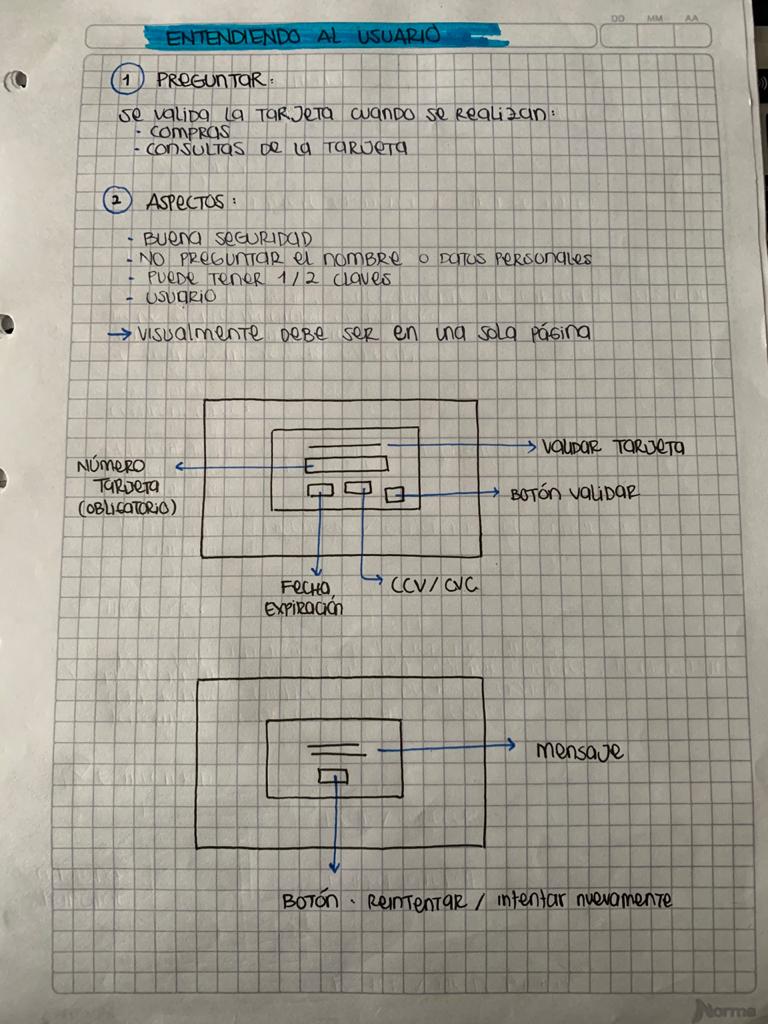 DD MM AA
ENTENDIENDO AL USUARIO
1 PREGUNTAR:
SE VALIDA LA TARJETA CUANDO SE REALIZAN:
- COMPRAS
- CONSULTAS DE LA TARJETA
2 ASPECTOS:
- BUENA SEGURIDAD
- NO PREGUNTAR EL NOMBRE O DATOS PERSONALES
- PUEDE TENER 1/2 CLAVES
- USUARIO
→ VISUALMENTE DEBE SER EN UNA SOLA PÁGINA
VALIDAR TARJETA
NÚMERO
TARJETA
(OBLIGATORIO)
BOTÓN VALIDAR
FECHA
EXPIRACIÓN
CCV/CVC
MENSAJE
BOTÓN · REINTENTAR / INTENTAR NUEVAMENTE
Norma